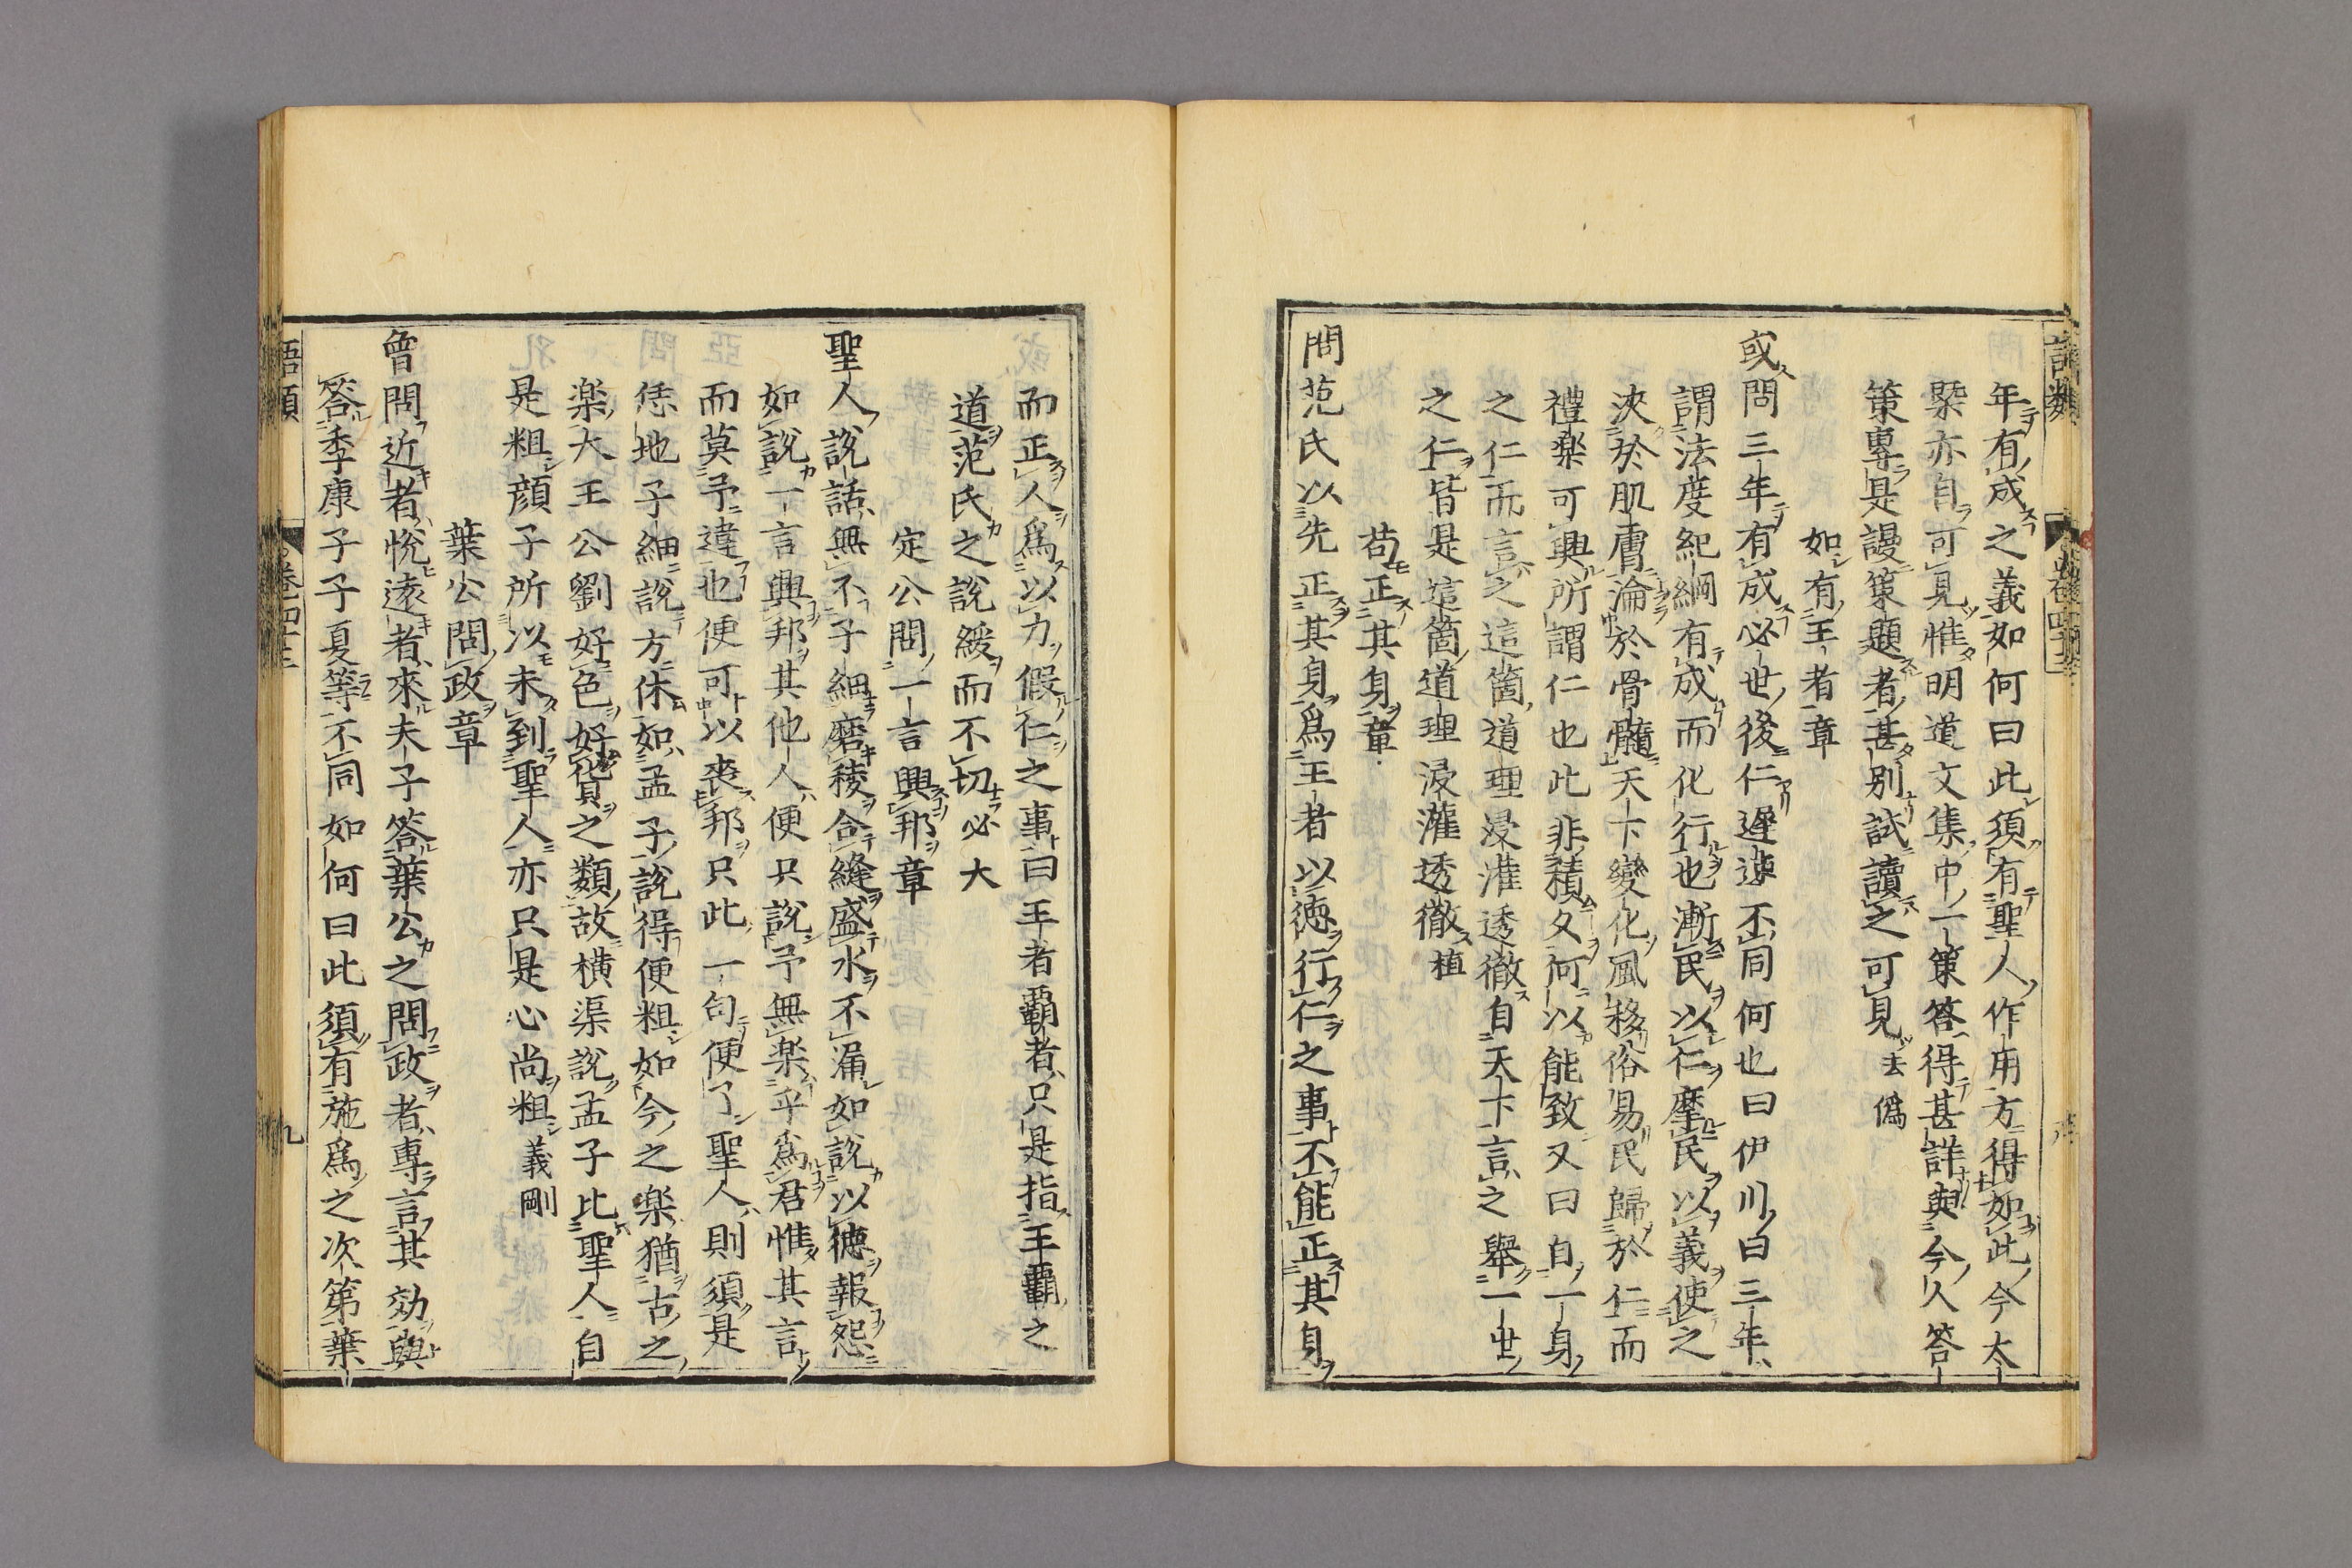 年有成之義如何曰此須有聖人作用方得如此今太
槩亦自可見惟明道文集中一策答得甚詳與今人答
策專是謾策題者甚別試讀之可見 去偽
如有王者章
或問三年有成必世後仁遲速不同何也曰伊川曰三年
謂法度紀綱有成而化行也漸民以仁摩民以義使之
浹於肌膚淪於骨髓天下變化風移俗易民歸於仁而
禮楽可興所謂仁也此非積久何以能致又曰自一身
之仁而言之這箇道理浸灌透徹自天下言之舉一世
之仁皆是這箇道理浸灌透徹 植
苟正其身章
問范氏以先正其身為王者以徳行仁之事不能正其身
而正人爲以力假仁之事曰王者覇者只是指王覇之
道范氏之説緩而不切 必大
定公問一言興邦章
聖人説話無不子細磨稜合縫盛水不漏如説以徳報怨
如説一言興邦其他人便只説予無楽乎爲君惟其言
而莫予違也便可以喪邦只此一句便了聖人則須是
恁地子細説方休如孟子説得便粗如今之楽猶古之
楽大王公劉好色好貨之類故横渠説孟子比聖人自
是粗顔子所以未到聖人亦只是心尚粗 義剛
葉公問政章
曾問近者悦遠者來夫子答葉公之問政者專言其効與
答季康子子夏等不同如何曰此須有施爲之次第葉
語類
卷四十三
九